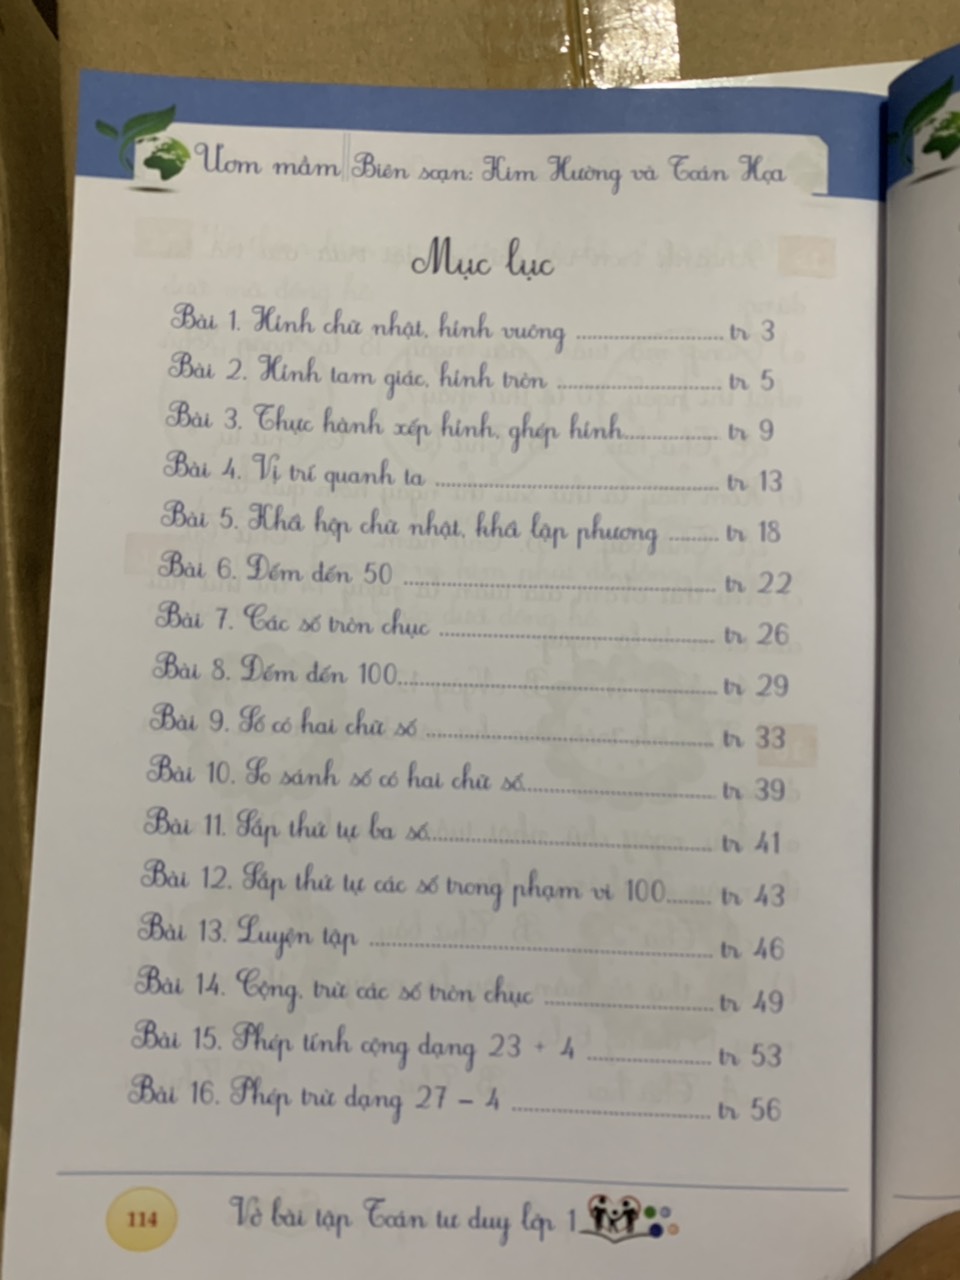 Ươm mầm Biên soạn: Kim Hường và Toán Họa
Mục lục
Bài 1. Hình chữ nhật, hình vuông ........................ tr 3
Bài 2. Hình tam giác, hình tròn ........................... tr 5
Bài 3. Thực hành xếp hình, ghép hình................ tr 9
Bài 4. Vị trí quanh ta ................................................ tr 13
Bài 5. Khối hộp chữ nhật, khối lập phương ........ tr 18
Bài 6. Đếm đến 50 .................................................... tr 22
Bài 7. Các số tròn chục ............................................. tr 26
Bài 8. Đếm đến 100..................................................... tr 29
Bài 9. Số có hai chữ số ............................................... tr 33
Bài 10. So sánh số có hai chữ số............................... tr 39
Bài 11. Sắp thứ tự ba số.............................................. tr 41
Bài 12. Sắp thứ tự các số trong phạm vi 100....... tr 43
Bài 13. Luyện tập ......................................................... tr 46
Bài 14. Cộng, trừ các số tròn chục ............................ tr 49
Bài 15. Phép tính cộng dạng 23 + 4 .................... tr 53
Bài 16. Phép trừ dạng 27 – 4 ................................. tr 56
114
Vở bài tập Toán tư duy lớp 1